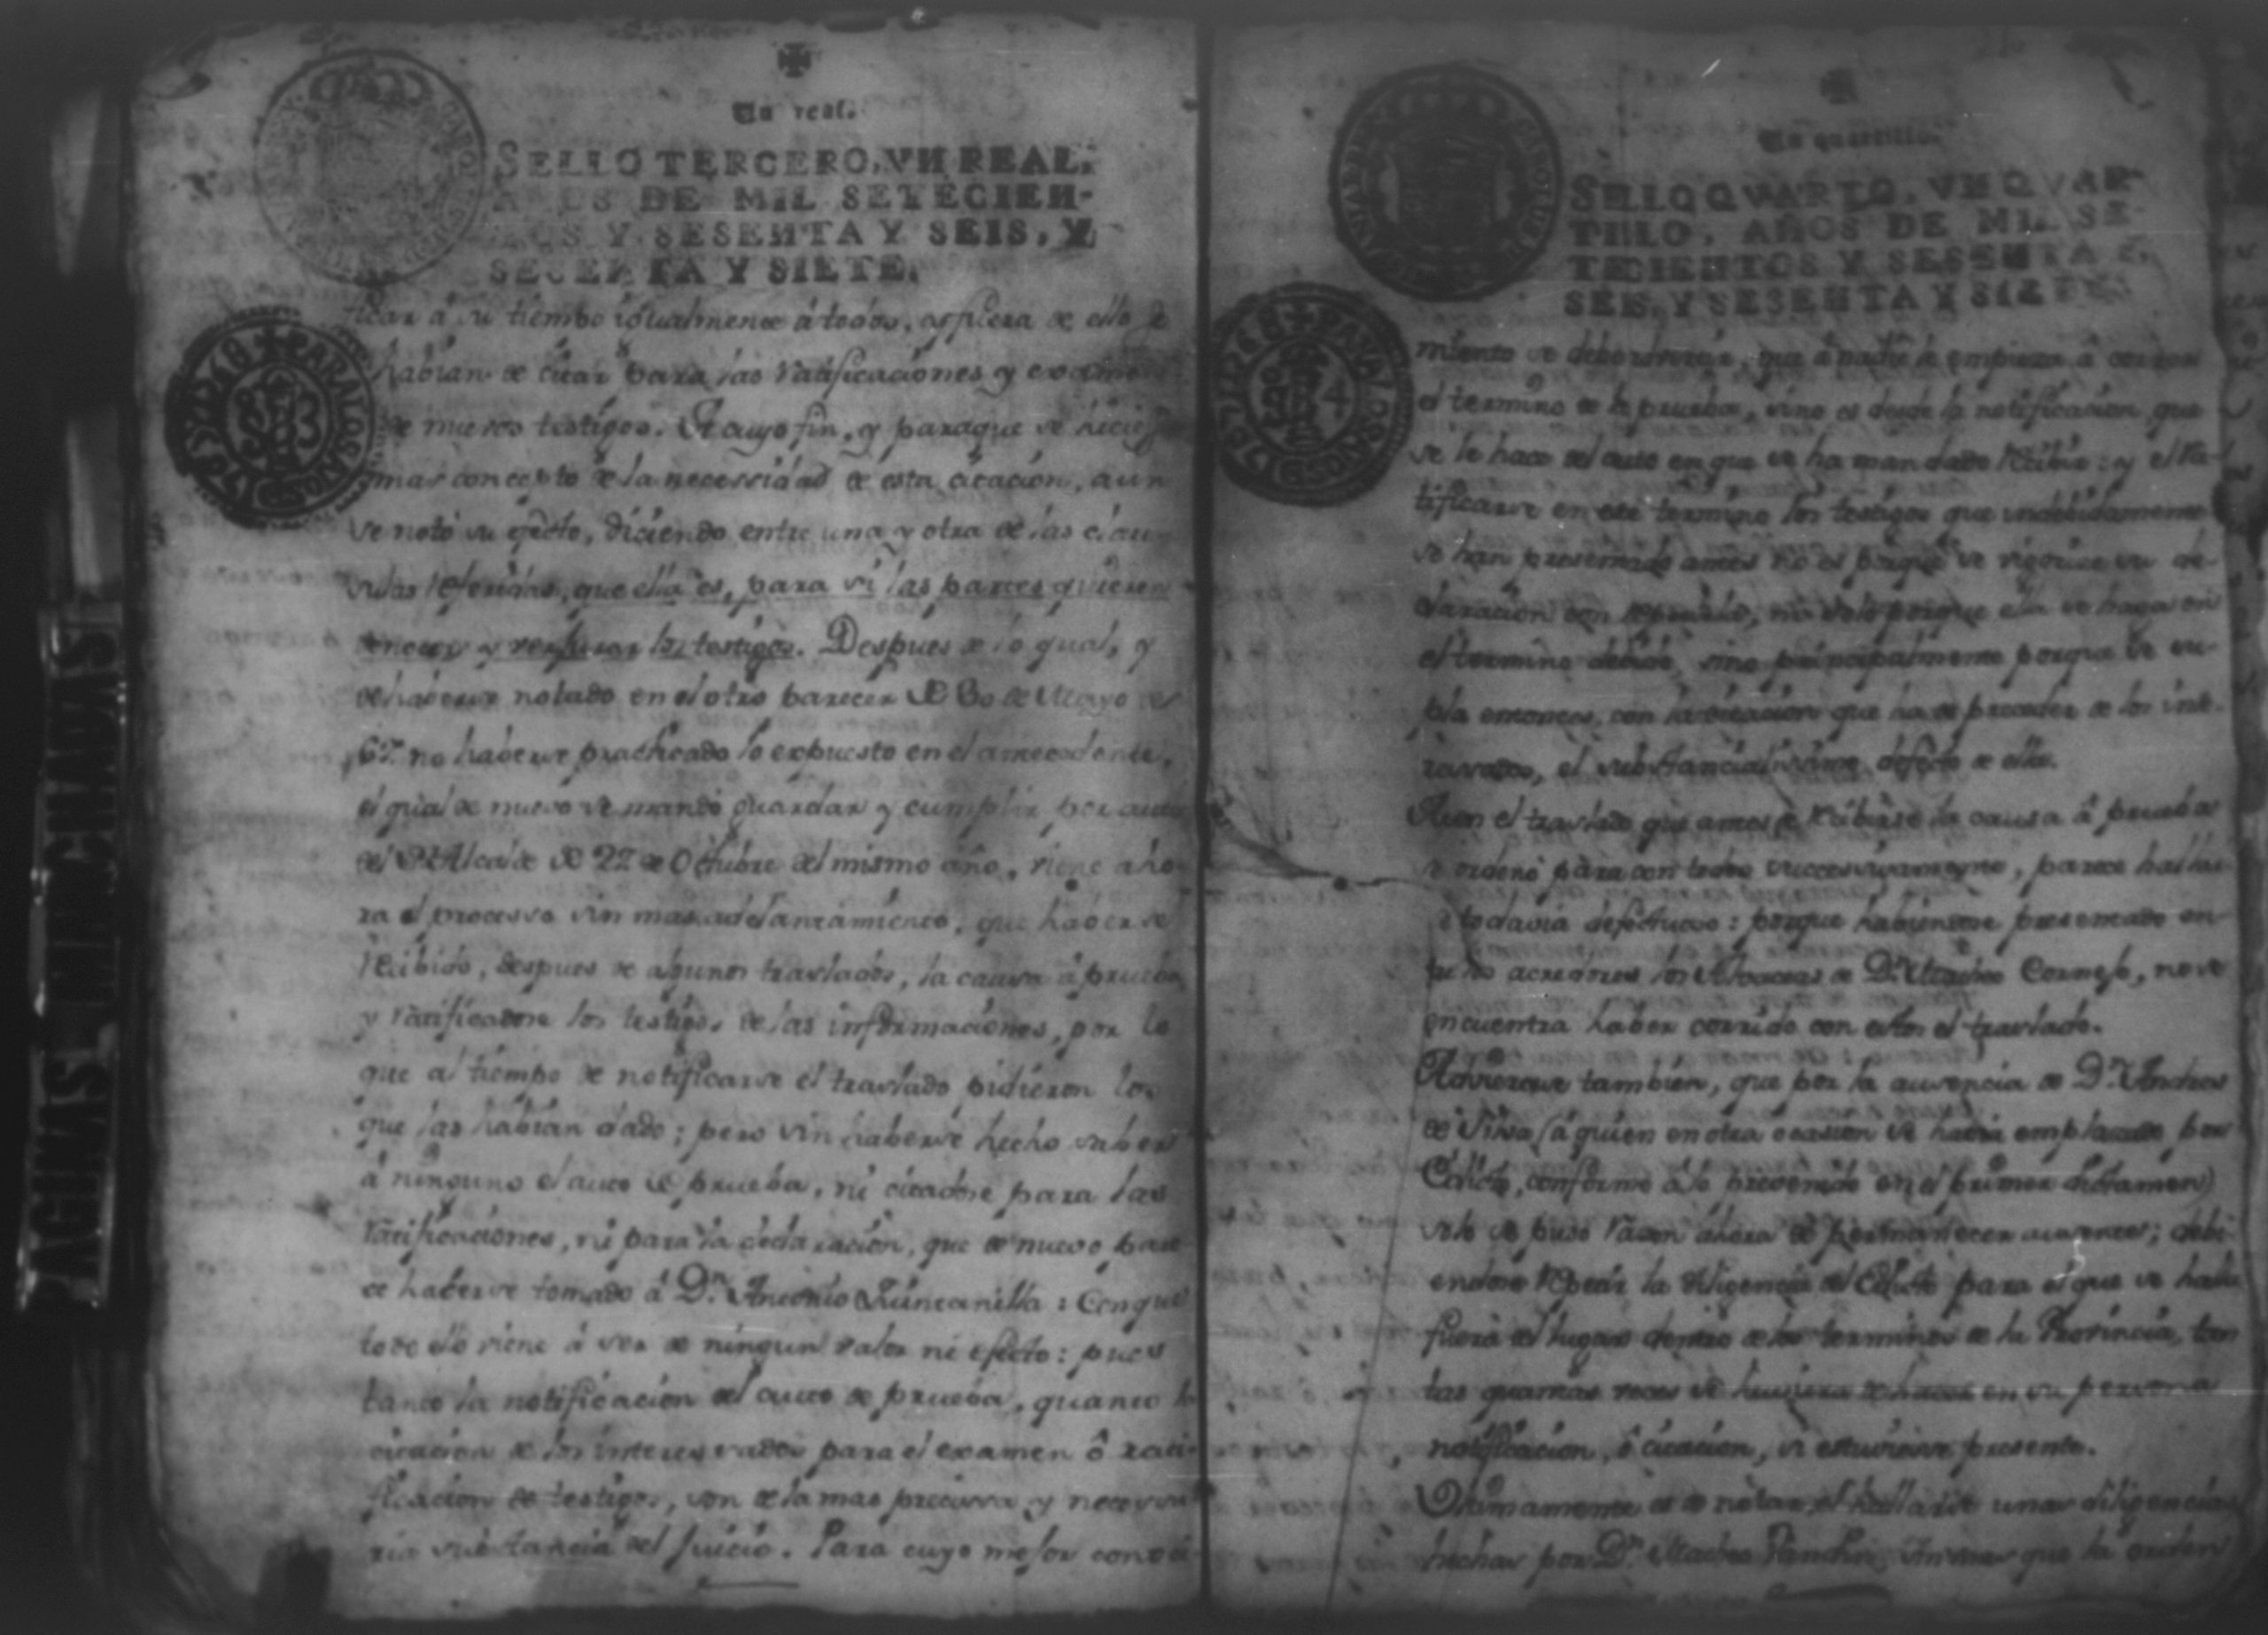 Un real.
SELLO TERCERO, VN REAL,
AÑOS DE MIL SETECIEN-
TOS Y SESENTA Y SEIS, Y
SESENTA Y SIETE.
PARA LOS AÑOS D 1767 Y 1768
ficar â su tiempo igualmente â todos, y fuera de ello se
habian de citar para las ratificaciones y examen
de nuevos testigos. A cuyo fin, y paraque se hiciesse
mas concepto de la necessidad de esta citacion, aun
se notó su efecto, diciendo entre una y otra de las clau-
sulas referidas, que ella es, para si las partes quieren
conocer y ver jurar los testigos. Despues de lo qual, y
de haberse notado en el otro parecer de 30 de Mayo de
67. no haberse practicado lo expuesto en el antecedente,
el qual de nuevo se mandó guardar y cumplir por auto
del Sr. Alcalde de 22 de Octubre del mismo año, viene aho-
ra el processo sin mas adelantamiento, que haberse
recibido, despues de algunos traslados, la causa â prueba,
y ratificadose los testigos de las informaciones, por lo
que al tiempo de notificarse el traslado pidieron los
que las habian dado; pero sin haberse hecho saber
â ninguno el auto de prueba, ni citadose para las
ratificaciones, ni para la declaracion, que de nuevo pare-
ce haberse tomado â Dn. Antonio Quintanilla: Conque
todo ello viene â ser de ningun valor ni efecto: pues
tanto la notificacion del auto de prueba, quanto la
citacion de los interessados para el examen ô rati-
ficacion de testigos, son de la mas precissa y necessa-
ria substancia del Juicio. Para cuyo mejor conoci-
Un quartillo.
SELLO QVARTO, VN QVAR-
TILLO, AÑOS DE MIL SE-
TECIENTOS Y SESENTA Y
SEIS, Y SESENTA Y SIETE.
PARA LOS AÑOS D 1767 Y 1768
miento se deberá ver, que â nadie le empieza â correr
el termino de la prueba, sino es desde la notificacion que
se le hace del auto en que se ha mandado recibir: y el ra-
tificarse en este termino los testigos que indebidamente
se han presentado antes no es porque se vigorice su de-
claracion con repetirla, no solo porque ella se haga en
el termino debido, sino principalmente porque se su-
pla entonces, con la citacion que ha de preceder de los inte-
ressados, el substancialissimo defecto de ella.
Aun el traslado que antes de recibirse la causa â prueba
se ordenó para con todos successivamente, parece hallar-
se todavia defectuoso: porque habiendose presentado en-
tre los acreedores los Albaceas de Dn. Matheo Cornejo, no se
encuentra haber corrido con estos el traslado.
Adviertese tambien, que por la ausencia de Dn. Andres
de Silva (â quien en otra ocasion se havia emplazado por
Edicto, conforme â lo prevenido en el primer dictamen)
solo se puso razon ahora de permanecer ausente; debi-
endose repetir la diligencia del Edicto para el que se halla
fuera del lugar dentro de los terminos de la Provincia, tan-
tas quantas veces se huviera de hacer en su persona
notificacion, ô citacion, si estuviesse presente.
Ultimamente es de notar el hallarse unas diligencias
hechas por Dn. Matheo sin mas que la orden
PAGINAS MANCHADAS